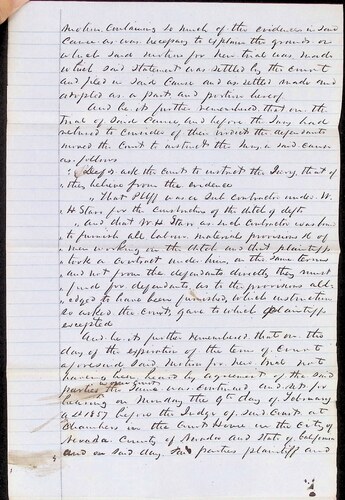 motion containing so much of the evidence in said
cause as was necessary to explain the grounds on
which said motion for new trial was made
which said statement was settled by the Court
and filed in said cause and as settled made and
adopted as a part and portion hereof
And be it further remembered that on the
trial of said cause, and before the Jury had
retired to consider of their verdict the defendants
moved the Court to instruct the Jury in said cause
as follows
Defts ask the Court to instruct the Jury, that if
they believe from the evidence
"That Plff was a sub contractor under W.
H Starr for the construction of the ditch of defts
"and that W. H. Starr as such Contractor was
to furnish all labor materials provisions &c of
men working on the ditch and that plaintiffs
took a contract under him on the same terms
and not from the defendants directly they must
find for defendants as to the provisions all-
edged to have been furnished, which instruction
so asked the Court gave to which plaintiffs
excepted
And be it further remembered that on the
day of the expiration of the term of Court
aforesaid said motion for new trial not
having been heard by agreement of the said
parties in open Court the same was continued and set for
hearing on Monday the 9th day of February
A.D 1857 before the Judge of said Court at
Chambers in the Court House in the City of
Nevada County of Nevada and State of California
and on said day the parties plaintiff and